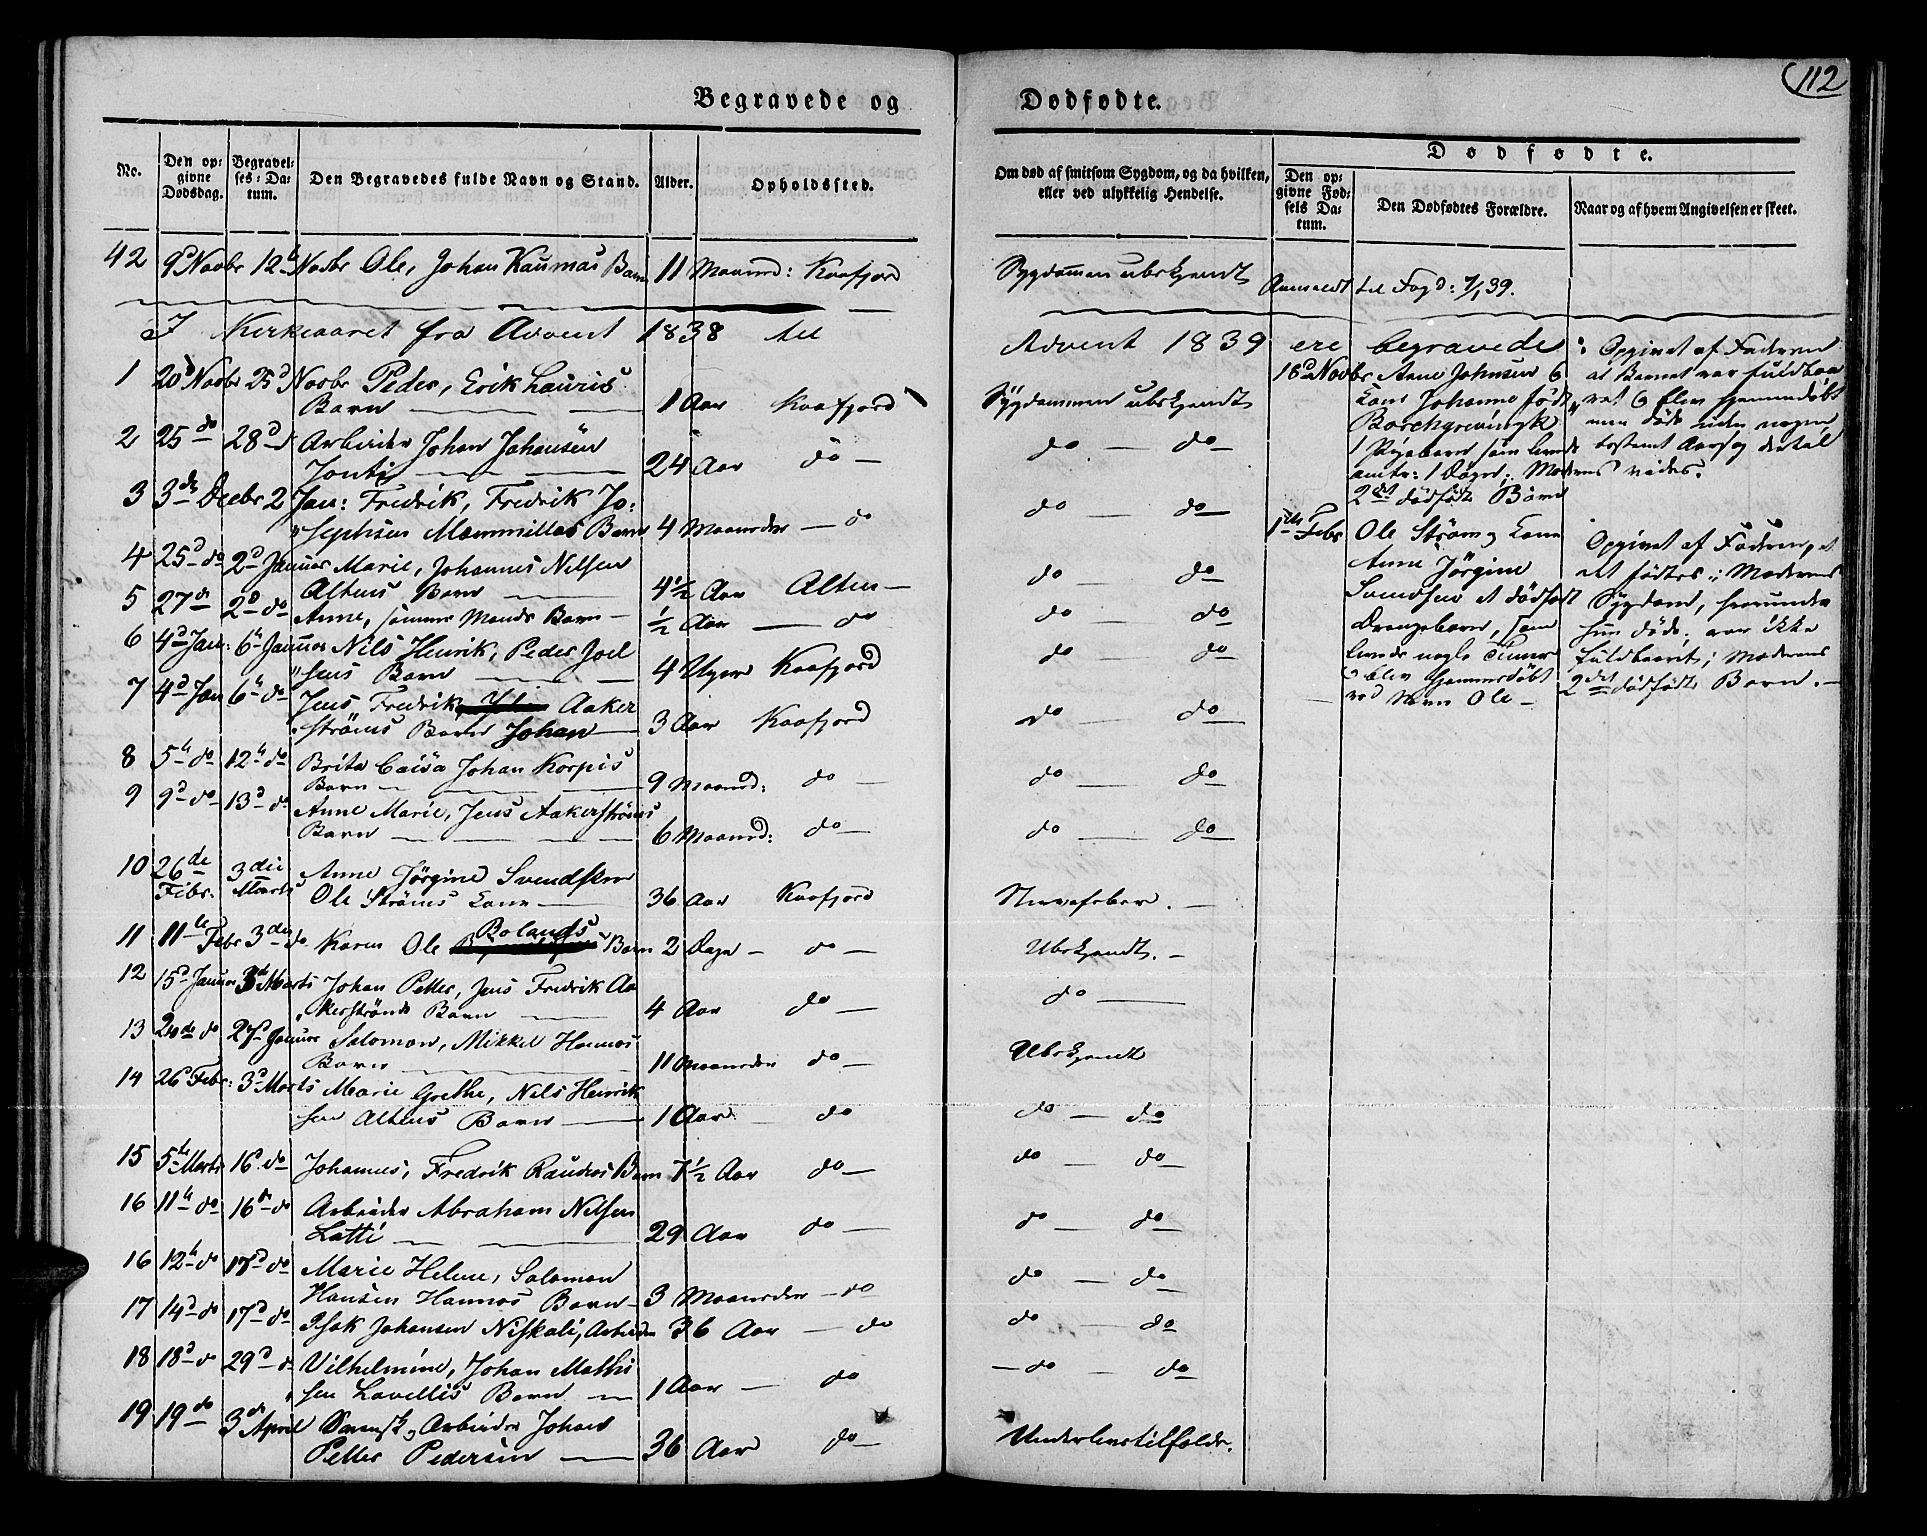 112
Begravede og Dødfødte.
No.
Den opgivne Dødsdag.
Begravelses-Datum.
Den Begravedes fulde Navn og Stand.
Alder.
Opholdssted.
Om død af smitsom Sygdom, og da hvilken,
eller ved ulykkelig Hendelse.
Dødfødte.
Den opgivne Fødsels Datum.
Den Dødfødtes Forældre.
Naar og af hvem Angivelsen er skeet.
42 9d Novbr 12te Novbr Ole, Johan Kaumas Barn 11 Maaned: Kaafjord Sygdommen ubekjendt Anmeldt til Fogd: 7/1 39.
I Kirkeaaret fra Advent 1838 til Advent 1839 ere begravede:
1 20d Novbr 25d Novbr Peder, Erik Lauris
Barn 1 Aar Kaafjord Sygdommen ubekjendt
2 25 do 28d Arbeider Johan Johansen
Jonti 24 Aar do do do
3 3die Decbr 2 Jan: Fredrik, Fredrik Jo:
sephsen Mammillas Barn 4 Maaneder do do do
4 25d do 2d Januar Marie, Johannes Nilsen
Altens Barn 4½ Aar Alten do do
5 27d 2d do Anne, samme Mands Barn ½ Aar do do do
6 4d Jan: 6te Januar Nils Henrik, Peder Joel
sens Barn 4 Uger Kaafjord do do
7 4d Jan 6te do Jens Fredrik Aaker
strøms Barn Johan 3 Aar Kaafjord do do
8 5te do 12te do Brita Caisa Johan Korpis
Barn 9 Maaned: do do do
9 9d do 13d do Anne Marie, Jens Aakerstrøms
Barn 6 Maaned: do do do
10 26de Febr. 3die Marts Anne Jørgine Svendsen
Ole Strøms Kone 36 Aar Kaafjord Nervefeber.
11 11te Febr 3die do Karen Ole Bolands Barn 2 Dage do Ubekjendt.
12 15d Januar 3d Marts Johan Petter, Jens Fredrik Aa
kerstrøms Barn 4 Aar do do
13 20de do 27d Januar Salomon, Mikkel Hannos
Barn 11 Maaneder do Ubekjendt
14 26 Febr: 3d Marts Marie Grethe, Nils Henrik
sen Altens Barn 1 Aar do do do
15 5te Marts 16 do Johannes, Fredrik Raudas Barn 7½ Aar do do do
16 11te do 16d do Arbeider Abraham Nilsen
Latti 29 Aar do do do
16 12te do 17d do Marie Helene, Salomon
Hansen Hannos Barn 3 Maaneder do do do
17 14d do 17d do Isak Johansen Niskali, Arbeider 36 Aar do do do
18 18d do 29d do Vilhelmine, Johan Mathi
sen Lavellis Barn 1 Aar do do do
19 19 do 3d April Svensk Arbeider Johan
Petter Pedersen 36 Aar do Underlivstilfælde.
18d Novbr Arne Johnsen &
Kone Johanna født
Borchgrevingk
1 Pigebarn som levede
omtr: 1 Døgn; Moderens
2det dødfødte Barn
Opgivet af Faderen
at Barnet var fuldbaa
ret & blev hjemmedøbt
men døde uden nogen
bestemt Aarsag dertil
vides.
1ste Febr Ole Strøm & Kone
Anne Jørgine
Svendsen et dødfødt
Drengebarn, som
levede nogle Timer
& blev hjemmedøbt
ved Navn Ole
Opgivet af Faderen, at
det fødtes i Moderens
Sygdom, hvorunder
hun døde; var ikke
fuldbaaret; Moderens
2det dødfødte Barn.